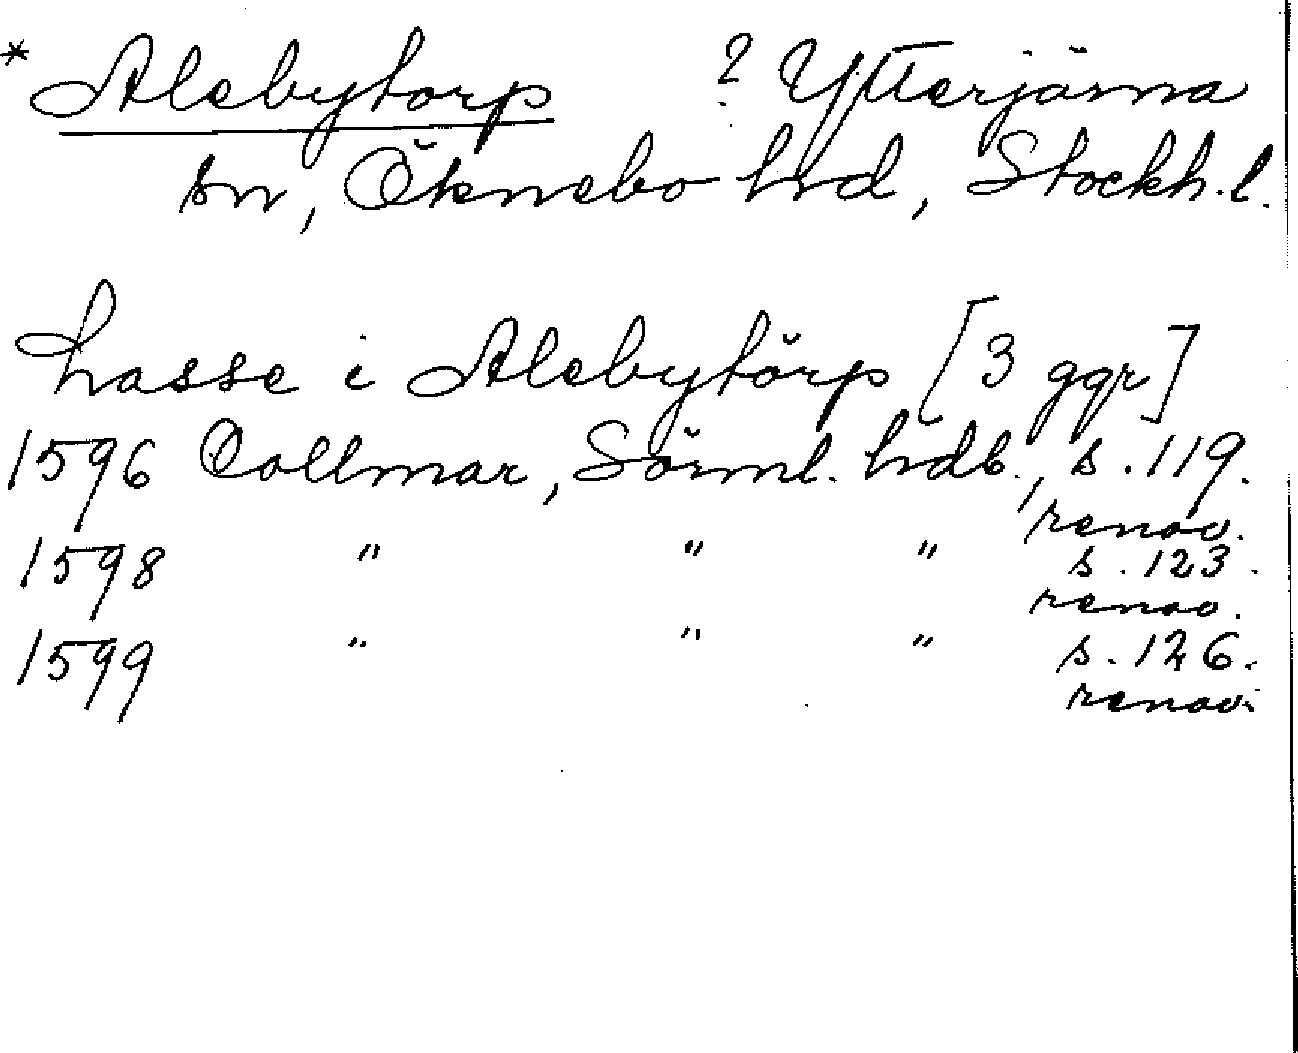 * Alebytorp ? Ytterjärna
sn, Öknebo hrd, Stockh. l.
Lasse i Alebytörp [3 ggr]
1596 Collmar, Sörml. hdb., s. 119.
renov.
1598 " " " s. 123.
renov.
1599 " " " s. 126.
renov.